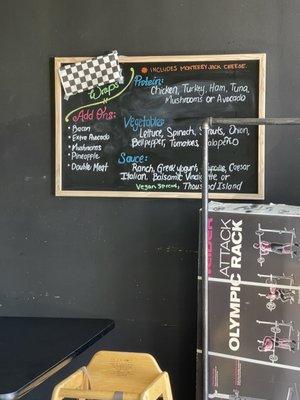 Wraps
* INCLUDES MONTEREY JACK CHEESE.
Protein:
Chicken, Turkey, Ham, Tuna,
Mushrooms or Avocado
Add Ons:
• Bacon
• Extra Avocado
• Mushrooms
• Pineapple
• Double Meat
Vegetables:
Lettuce, Spinach, Sprouts, Onion,
Bell pepper, Tomatoes, Jalapeño
Sauce:
Ranch, Greek yogurt, Caesar
Italian, Balsamic Vinaigrette or
Vegan Spread, Thousand Island
ATTACK
OLYMPIC RACK